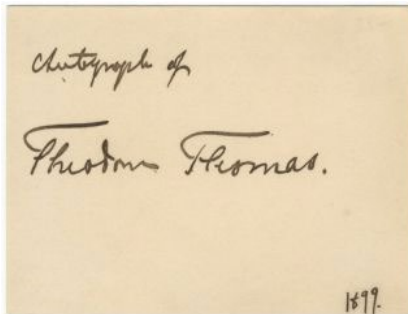 Autograph of
Theodore Thomas.
1899.